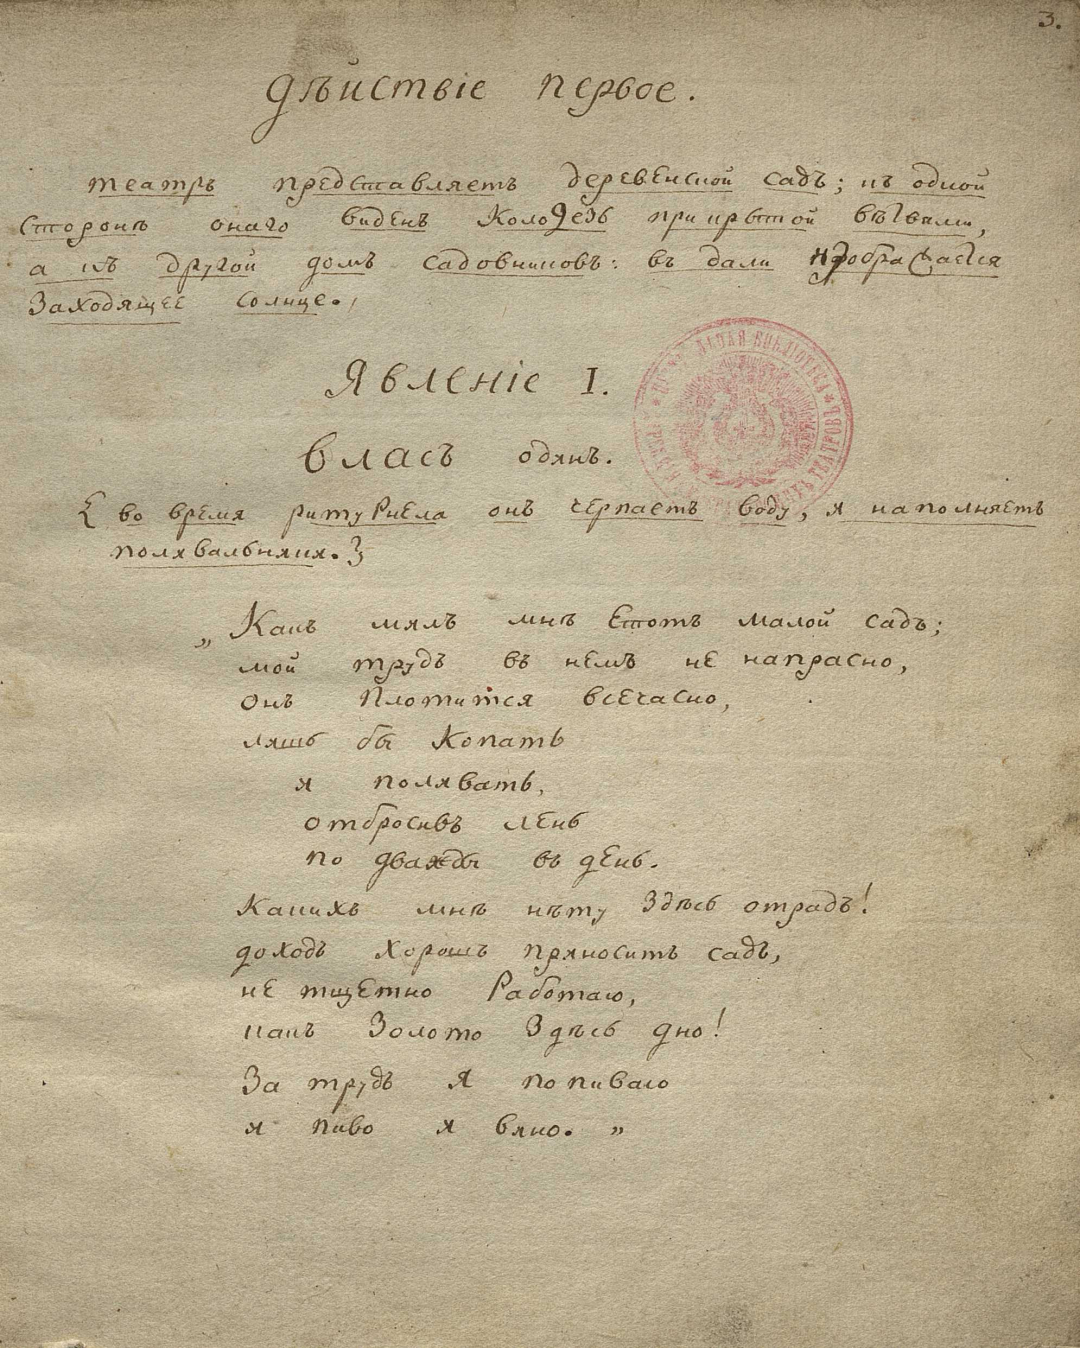 3.
Дѣйствіе первое.
театръ представляетъ деревенской садъ; къ одной
сторонѣ онаго виденъ колодезь прикрытой вѣтвями,
а къ другой домъ садовниковъ: въ дали изображается
заходящее солнце.
Явленіе I.
Власъ одянъ.
{ во время ритурнела онъ черпаетъ воду, я наполняетъ
полявальняки. }
„ Какъ мялъ мнѣ Етотъ малой садъ;
мой трудъ въ немъ не напрасно,
онъ плотится всечасно,
ляшь бы копать
я полявать,
отбросивъ лень
по дважды въ день.
Какихъ мнѣ нѣту здѣсь отрадъ!
доходъ хорошъ пряноситъ садъ,
не тщетно работаю,
какъ золото здѣсь дно!
За трудъ я попиваю
я пиво я вяно. „
БИБЛІОТЕКА ТЕАТРОВЪ